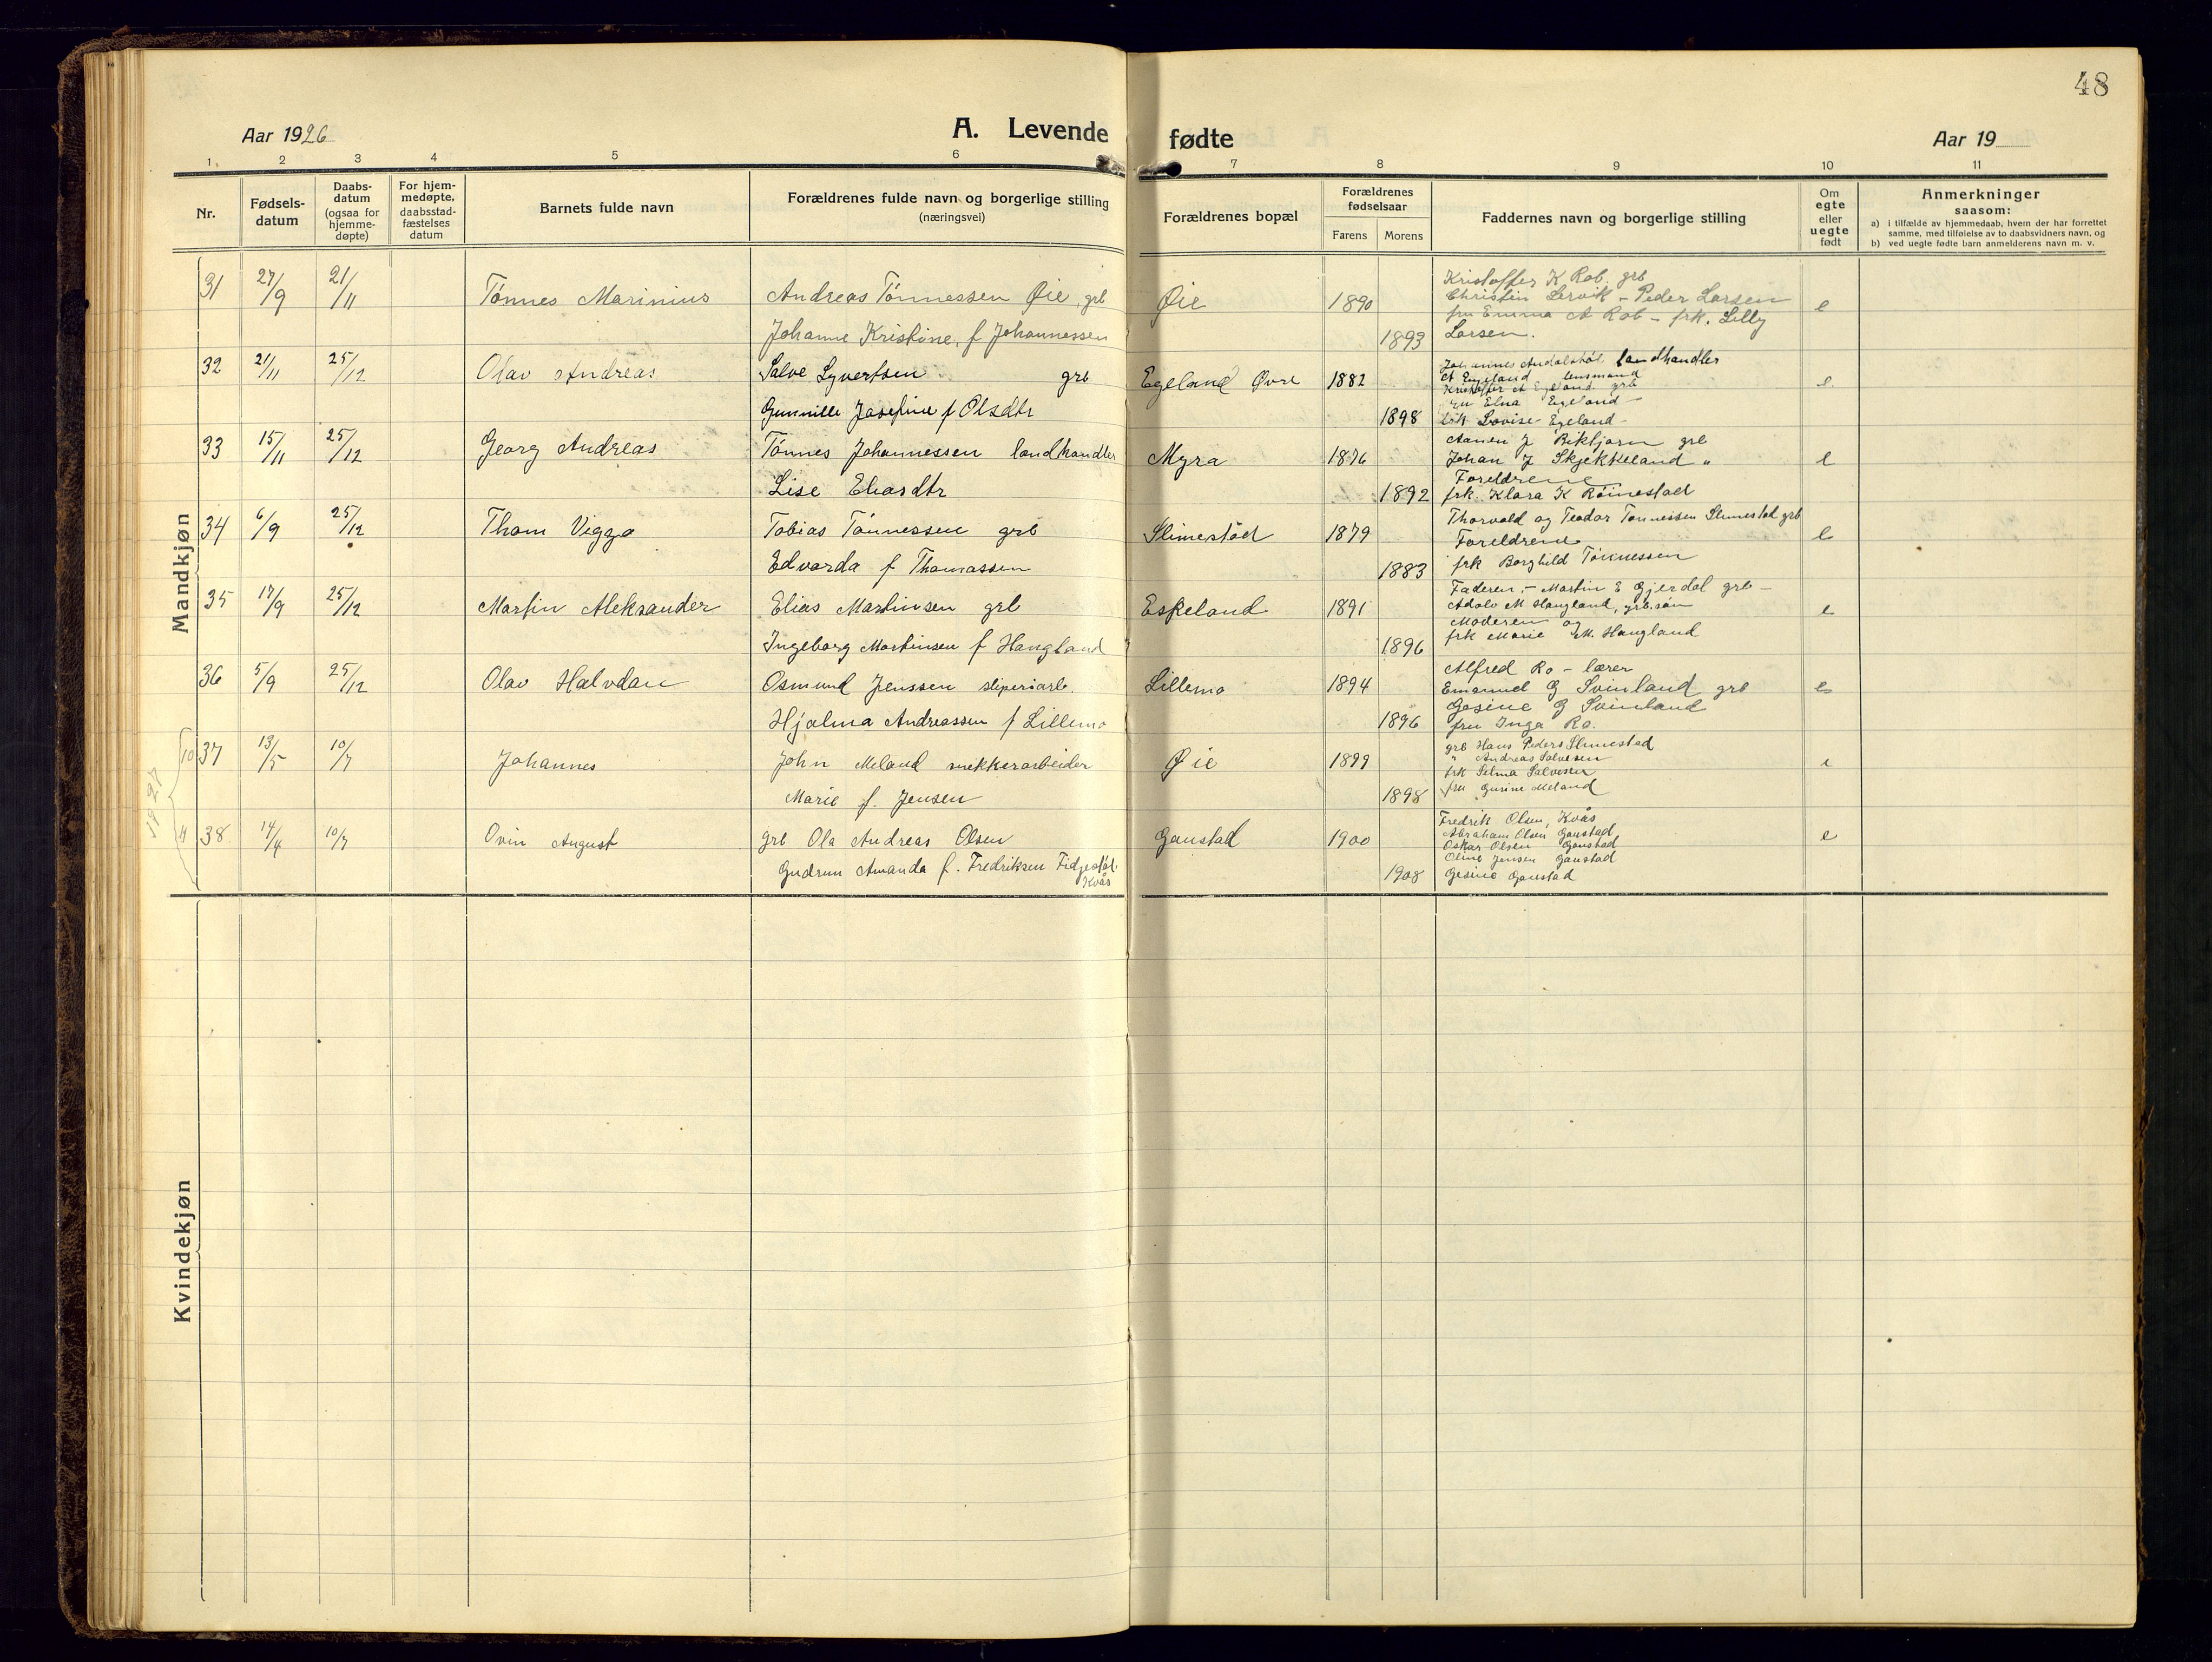 48
Aar 1926
A. Levende fødte
Aar 19
1 2 3 4 5 6 7 8 9 10 11
Nr.
Fødsels-
datum
Daabs-
datum
(ogsaa for
hjemme-
døpte)
For hjem-
medøpte,
daabsstad-
fæstelses
datum
Barnets fulde navn
Forældrenes fulde navn og borgerlige stilling
(næringsvei)
Forældrenes bopæl
Forældrenes
fødselsaar
Farens Morens
Faddernes navn og borgerlige stilling
Om
egte
eller
uegte
født
Anmerkninger
saasom:
a) i tilfælde av hjemmedaab, hvem der har forrettet
samme, med tilføielse av to daabsvidners navn, og
b) ved uegte fødte barn anmelderens navn m. v.
Mandkjøn
31 27/9 21/11 Tönnes Marinius Andreas Tönnessen Øie, grb Øie 1890 e
Johanne Kristine, f Johannessen 1893
Kristoffer K Rob. grb
Christin Lervik - Peder Larsen
fru Emma A Rob - frk. Lilly
Larsen.
32 21/11 25/12 Olav Andreas Salve Syvertsen grb Egeland Øvre 1882 e
Gunnille Josefine f Olsdtr 1898
landhandler
A Egeland lensmand
Kristoffer A Egeland grb
fru Elna Egeland
frk Lovise Egeland
33 15/11 25/12 Georg Andreas Tönnes Johannessen landhandler Myra 1876 e
Lise Eliasdtr 1892
Aanen J Birkjorn grb
Johan J Skjekkeland "
Foreldrene
frk. Klara K Röinestad
34 6/9 25/12 Thom Viggo Tobias Tönnessen grb Slimestad 1879 e
Edvarda f Thomassen 1883
Thorvald og Teodor Tönnessen Slimestad grb
Foreldrene
frk Borghild Tönnessen
35 17/9 25/12 Martin Aleksander Elias Martinsen grb Eskeland 1891 e
Ingeborg Martinsen f Haugland 1896
Faderen, - Martin E Gjerdal grb -
Adolv M Haugland, grb.sön
Moderen og
frk Marie M. Haugland
36 5/9 25/12 Olav Halvdan Osmund Jenssen sliperiarb. Lillemo 1894 e
Hjalma Andreassen f Lillemo 1896
Alfred Ro - lærer
Emanuel G Svinland grb
Gesine G Svinland
fru Inga Ro.
1927
10 37 13/5 10/7 Johannes John Meland snekkerarbeider Øie 1899 e
Marie f. Jensen 1898
grb Hans Peders Slimestad
" Andreas Salvesen
frk Selma Salvesen
fru Gusine Meland
38 14/4 10/7 Ovin August grb Ola Andreas Olsen Gaustad 1900 e
Gudrun Amanda f. Fredriksen Fidjestöl 1908
Kvås
Fredrik Olsen, Kvås
Abraham Olsen Gaustad
Oskar Olsen Gaustad
Oline Jensen Gaustad
Gesine Gaustad
Kvindekjøn